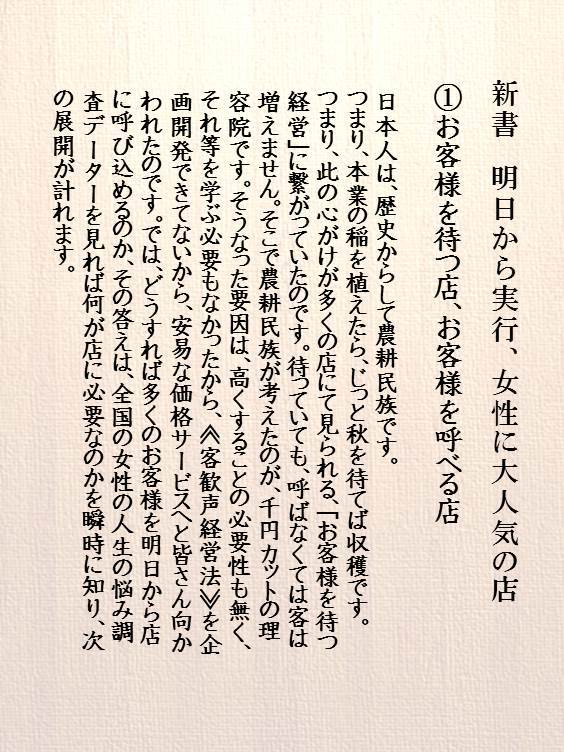 新書　明日から実行、女性に大人気の店
①お客様を待つ店、お客様を呼べる店
日本人は、歴史からして農耕民族です。
つまり、本業の稲を植えたら、じっと秋を待てば収穫です。
つまり、此の心がけが多くの店にて見られる、「お客様を待つ
経営」に繋がっていたのです。待っていても、呼ばなくては客は
増えません。そこで農耕民族が考えたのが、千円カットの理
容院です。そうなった要因は、高くすることの必要性も無く、
それ等を学ぶ必要もなかったから、≪客歓声経営法≫を企
画開発できてないから、安易な価格サービスへと皆さん向か
われたのです。では、どうすれば多くのお客様を明日から店
に呼び込めるのか、その答えは、全国の女性の人生の悩み調
査データーを見れば何が店に必要なのかを瞬時に知り、次
の展開が計れます。